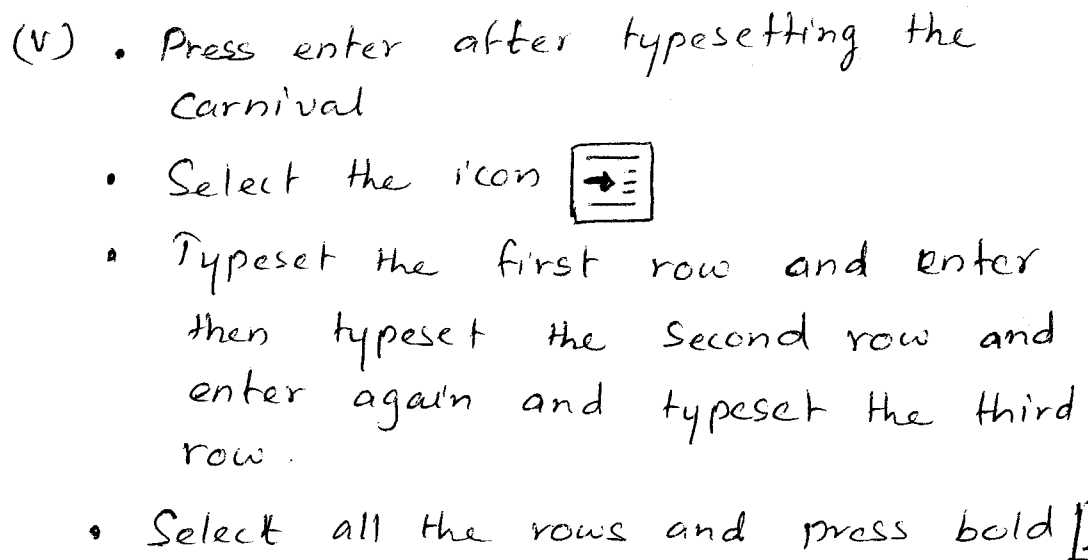 (V) • Press enter after typesetting the
Carnival
• Select the icon
• Typeset the first row and enter
then typeset the second row and
enter again and typeset the third
row.
• Select all the rows and press bold